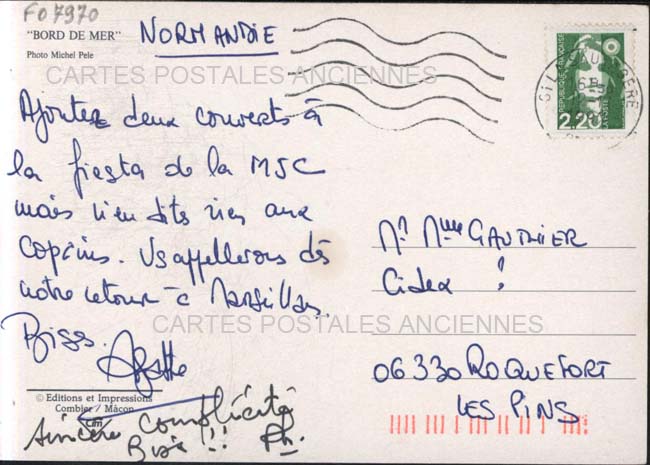 FO7970
"BORD DE MER"
Photo Michel Pele
NORMANDIE
CARTES POSTALES ANCIENNES
Ajoutez deux couverts à
la fiesta de la MJC
mais n'en dites rien aux
copains. Vs appellerons dès
notre retour à Marseillan.
Bises.
Agathe
© Editions et Impressions
Combier / Mâcon
Cim
Sincère complicité
Bise !! Ph.
RÉPUBLIQUE FRANÇAISE
LA POSTE
2,20
Mr Mme GAUTHIER
Cidex
CARTES POSTALES ANCIENNES
06330 ROQUEFORT
LES PINS